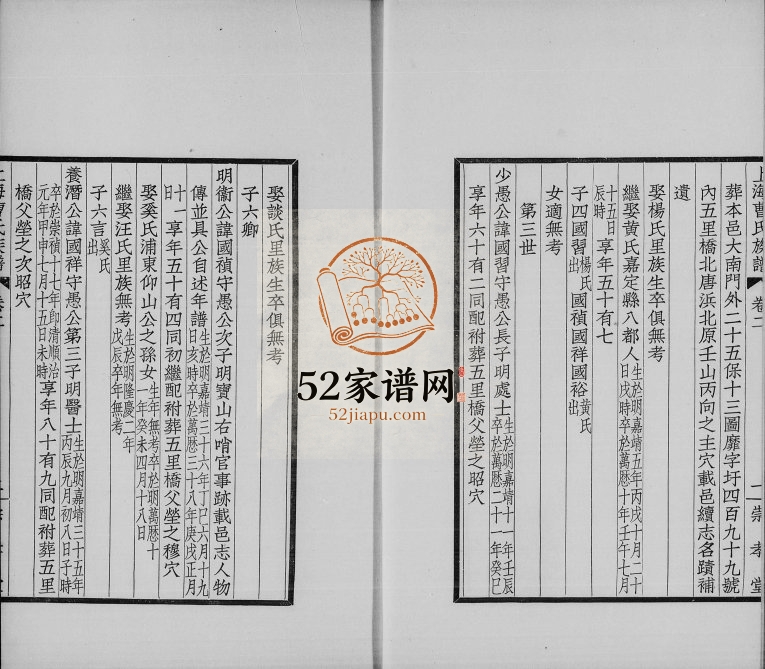 上海曹氏族譜 卷二
一 崇孝堂
葬本邑大南門外二十五保十三圖靡字圩四百九十九號
內五里橋北唐浜北原壬山丙向之主穴載邑續志名蹟補
遺
娶楊氏里族生卒俱無考
繼娶黃氏嘉定縣八都人生於明嘉靖五年丙戌十月二十
日戌時卒於萬曆十年壬午七月
十五日
辰時享年五十有七
子四國習楊氏出國禎國祥國裕黃氏出
女適無考
第三世
少愚公諱國習守愚公長子明處士生於明嘉靖十一年壬辰
卒於萬曆二十一年癸巳
享年六十有二同配祔葬五里橋父塋之昭穴
娶談氏里族生卒俱無考
子六卿
明衞公諱國禎守愚公次子明寶山右哨官事跡載邑志人物
傳並具公自述年譜生於明嘉靖三十六年丁巳六月十九
日亥時卒於萬曆三十八年庚戌正月
十一
日享年五十有四同初繼配祔葬五里橋父塋之穆穴
娶奚氏浦東仰山公之孫女生年無考卒於明萬曆十
一年癸未四月十八日
繼娶汪氏里族無考生於明隆慶二年
戊辰卒年無考
子六言奚氏出
養潛公諱國祥守愚公第三子明醫士生於明嘉靖三十五年
丙辰九月初八日子時
卒於崇禎十七年即清順治
元年甲申七月十五日未時享年八十有九同配祔葬五里
橋父塋之次昭穴
上海曹氏族譜 卷二
52家谱网
52jiapu.com